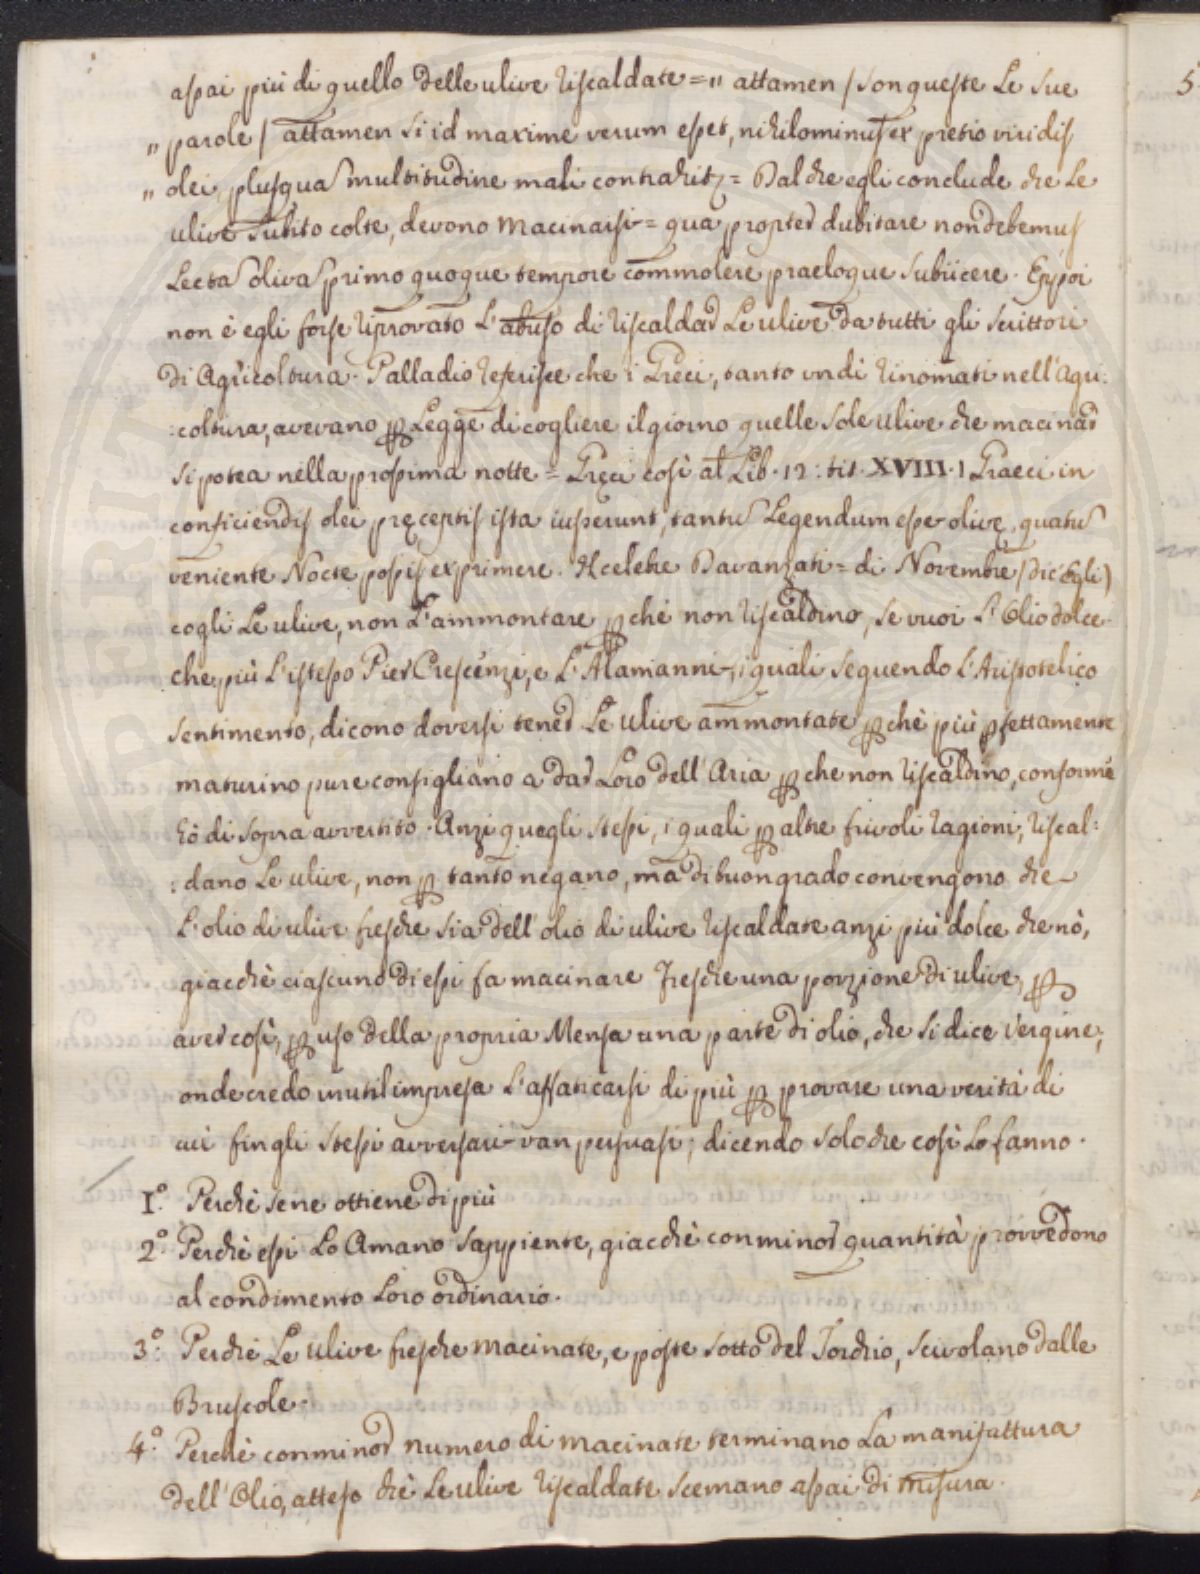 assai più di quello delle ulive riscaldate = " attamen / son queste le sue
" parole / attamen si id maxime verum esset, nihilominus ex pretio viridis
" olei, plusqua multitudine mali contrahit = Dal che egli conclude che le
ulive subito colte, devono macinarsi = qua propter dubitare non debemus
Lectas olivas primo quoque tempore commolere praeloque subiicere. E poi
non è egli forse riprovato l'abuso di riscaldar le ulive da tutti gli scrittori
di Agricoltura. Palladio referisce che i Greci, tanto un dì rinomati nell'Agri:
:coltura, avevano per Legge di cogliere il giorno quelle sole ulive che macinar
si potea nella prossima notte = Greci così al Lib. 12: tit. XVIII. / Graeci in
conficiendis olei pręceptis ista iusserunt, tantu Legendum esse olivę, quatu
veniente Nocte possis exprimere. Il celebre Davanzati = di Novembre (dic'Egli)
cogli le ulive, non l'ammontare perchè non riscaldino, se vuoi l'Olio dolce.
che più l'istesso Pier Crescenzi, e l'Alamanni, i quali seguendo l'Aristotelico
sentimento, dicono doversi tener le ulive ammontate perchè più perfettamente
maturino pure consigliano a dar Loro dell'Aria perche non riscaldino, conforme
hò di sopra avvertito. Anzi quegli stessi, i quali per altre frivoli ragioni, riscal:
:dano le ulive, non per tanto negano, mà di buon grado convengono che
l'olio di ulive fresche sia dell'olio di ulive riscaldate anzi più dolce che nò,
giacchè ciascuno di essi fa macinare fresche una porzione di ulive, per
aver così, per uso della propria Mensa una parte di olio, che si dice Vergine;
onde credo inutil impresa l'affaticarsi di più per provare una verità di
cui fin gli stessi avversari van persuasi; dicendo solo che così lo fanno.
1.° Perchè se ne ottiene di più
2.° Perchè essi lo Amano sappiente, giacchè con minor quantità provvedono
al condimento Loro ordinario.
3.° Perchè le ulive fresche macinate, e poste sotto del Torchio, scivolano dalle
Bruscole.
4.° Perchè con minor numero di macinate terminano la manifattura
dell'Olio, atteso chè le ulive riscaldate scemano assai di misura.